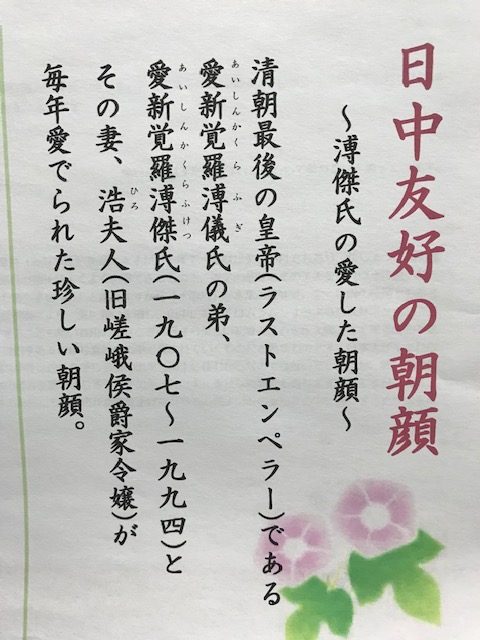 日中友好の朝顔
〜溥傑氏の愛した朝顔〜
清朝最後の皇帝(ラストエンペラー)である
あいしんかくらふぎ
愛新覚羅溥儀氏の弟、
あいしんかくらふけつ
愛新覚羅溥傑氏(一九〇七〜一九九四)と
ひろ
その妻、浩夫人(旧嵯峨侯爵家令嬢)が
毎年愛でられた珍しい朝顔。